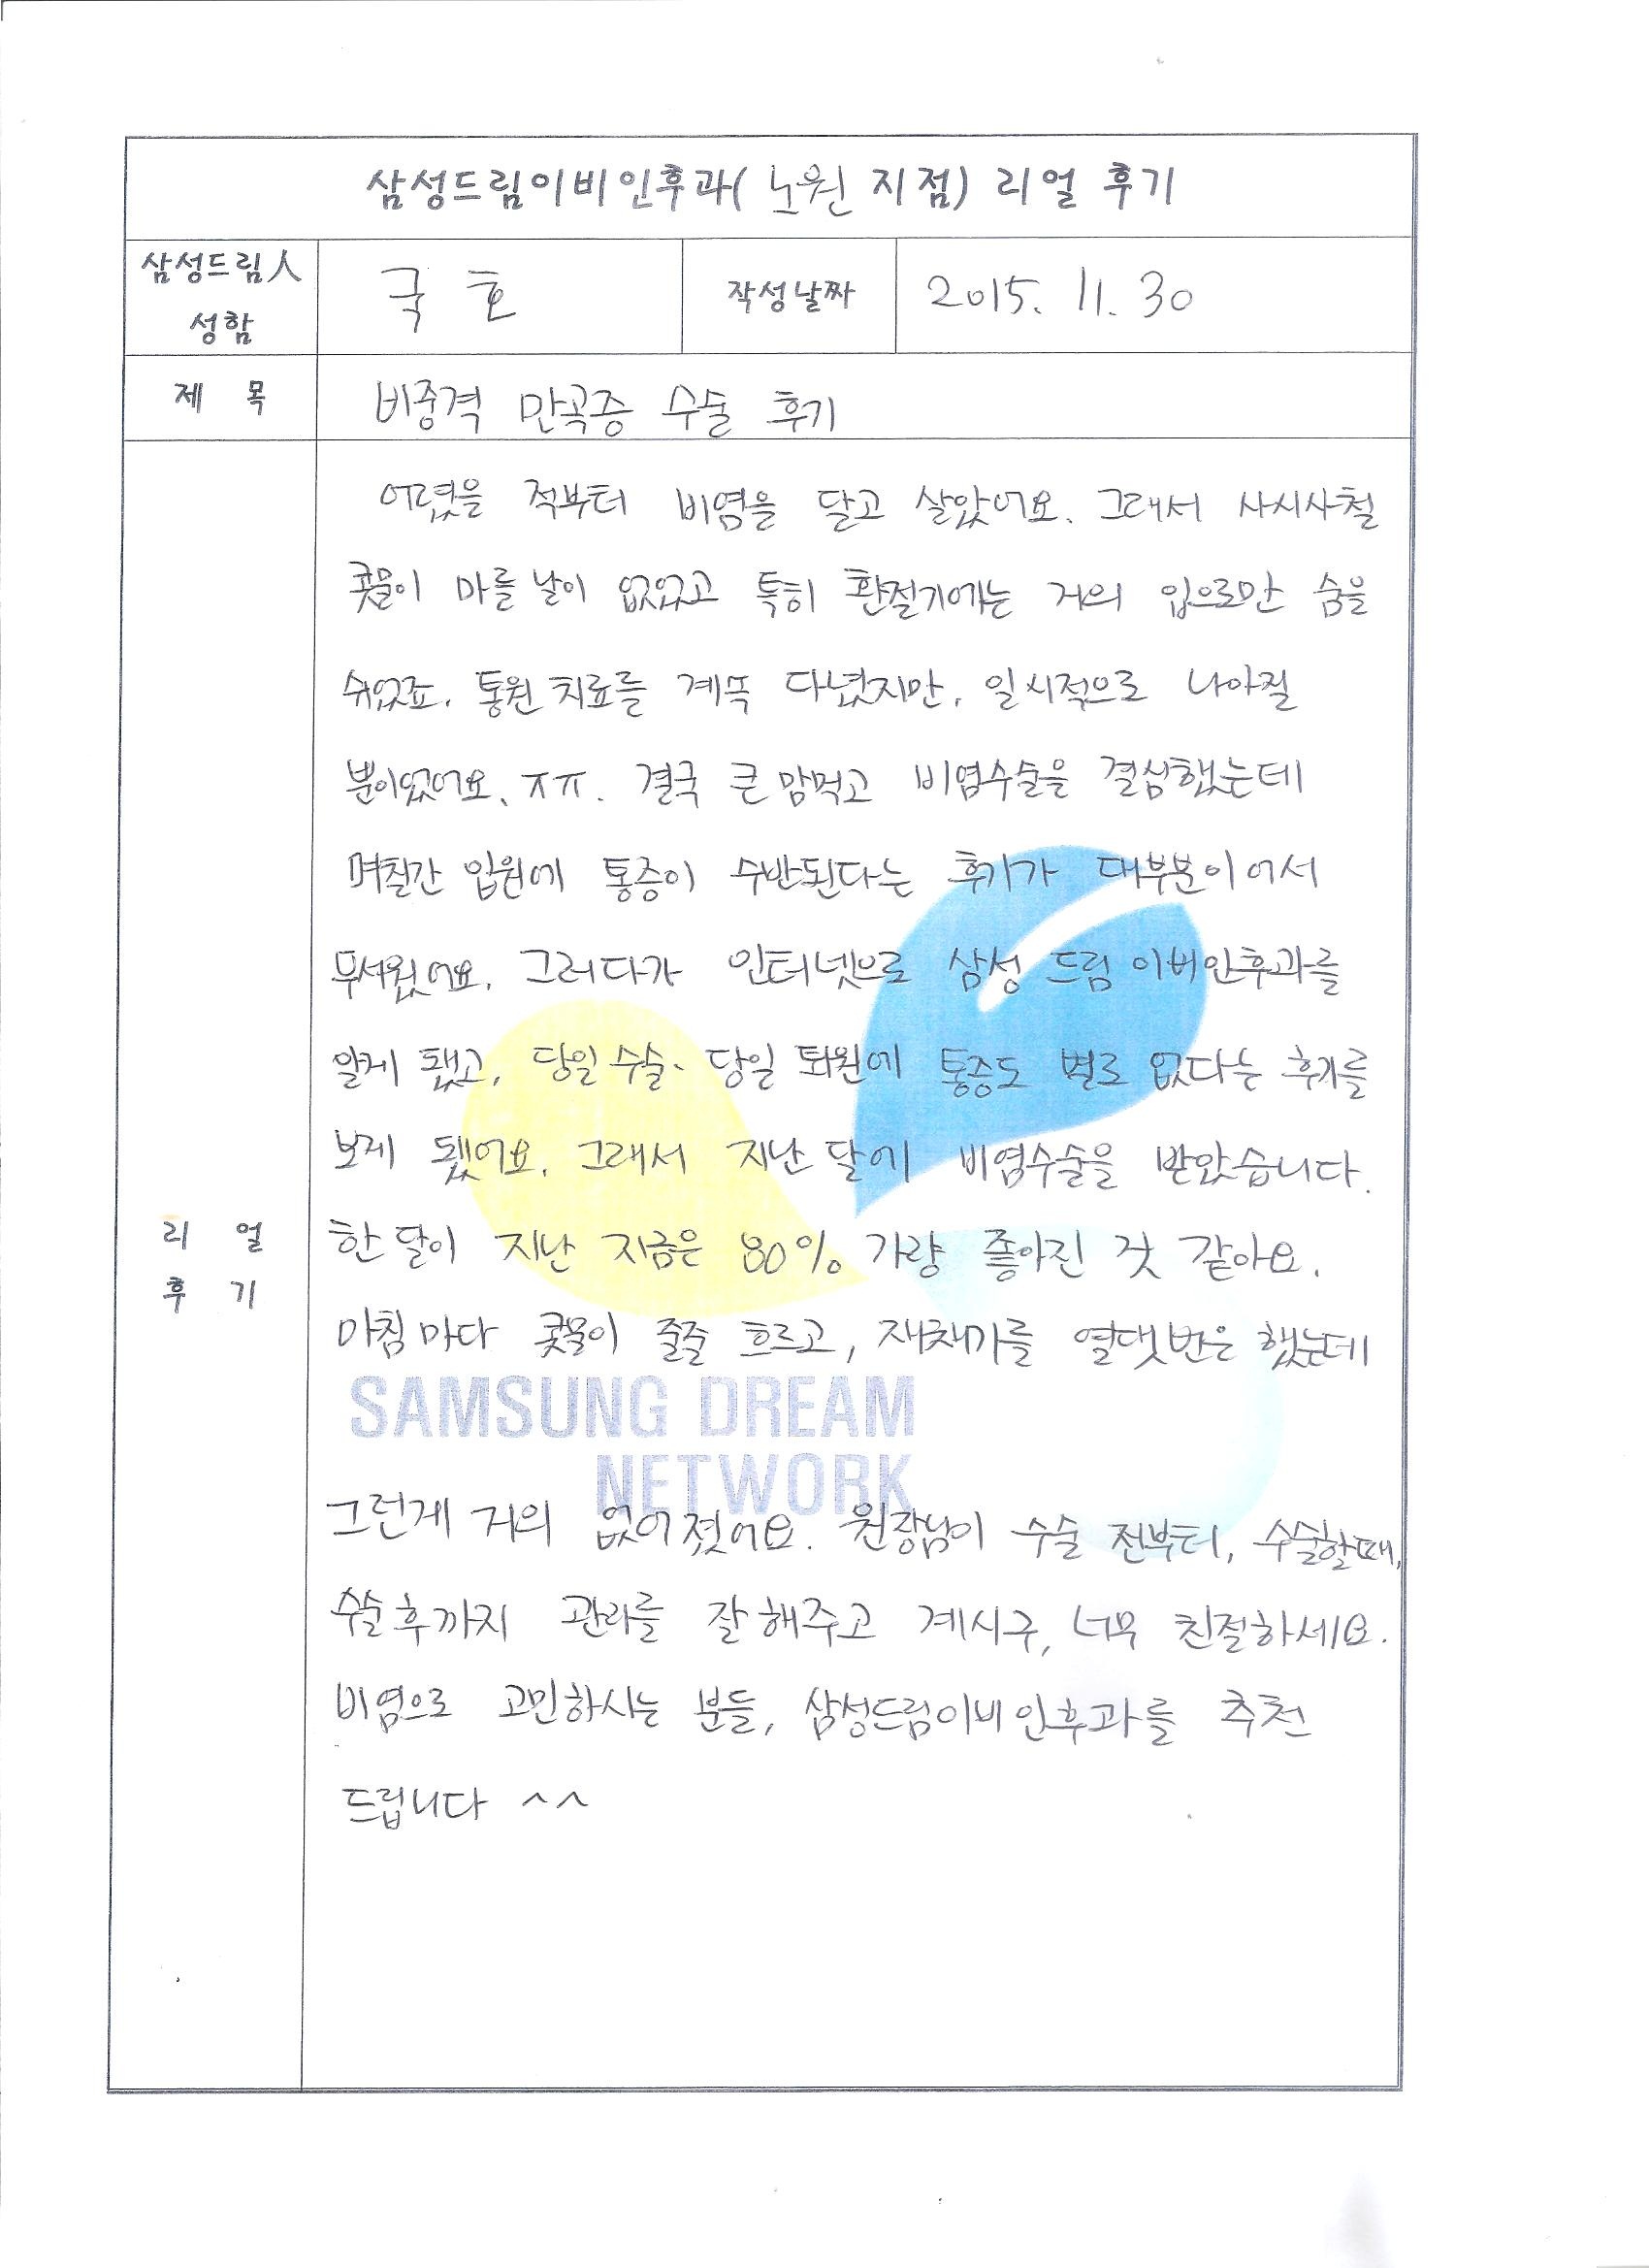 삼성드림이비인후과( 노원 지점) 리얼 후기
삼성드림人 성함
국 호
작성날짜
2015. 11. 30
제 목
비중격 만곡증 수술 후기
리 얼 후 기
어렸을 적부터 비염을 달고 살았어요. 그래서 사시사철
콧물이 마를 날이 없었고 특히 환절기에는 거의 입으로만 숨을
쉬었죠. 통원치료를 계속 다녔지만, 일시적으로 나아질
뿐이었어요. ㅠㅠ. 결국 큰 맘먹고 비염수술을 결심했는데
며칠간 입원에 통증이 수반된다는 후기가 대부분이어서
무서웠어요. 그러다가 인터넷으로 삼성 드림 이비인후과를
알게 됐고, 당일 수술· 당일 퇴원에 통증도 별로 없다는 후기를
보게 됐어요. 그래서 지난 달에 비염수술을 받았습니다.
한 달이 지난 지금은 80% 가량 좋아진 것 같아요.
아침마다 콧물이 줄줄 흐르고, 재채기를 열댓번은 했는데
SAMSUNG DREAM
NETWORK
그런게 거의 없어졌어요. 원장님이 수술 전부터, 수술할때,
수술후까지 관리를 잘해주고 계시구, 너무 친절하세요.
비염으로 고민하시는 분들, 삼성드림이비인후과를 추천
드립니다 ^^